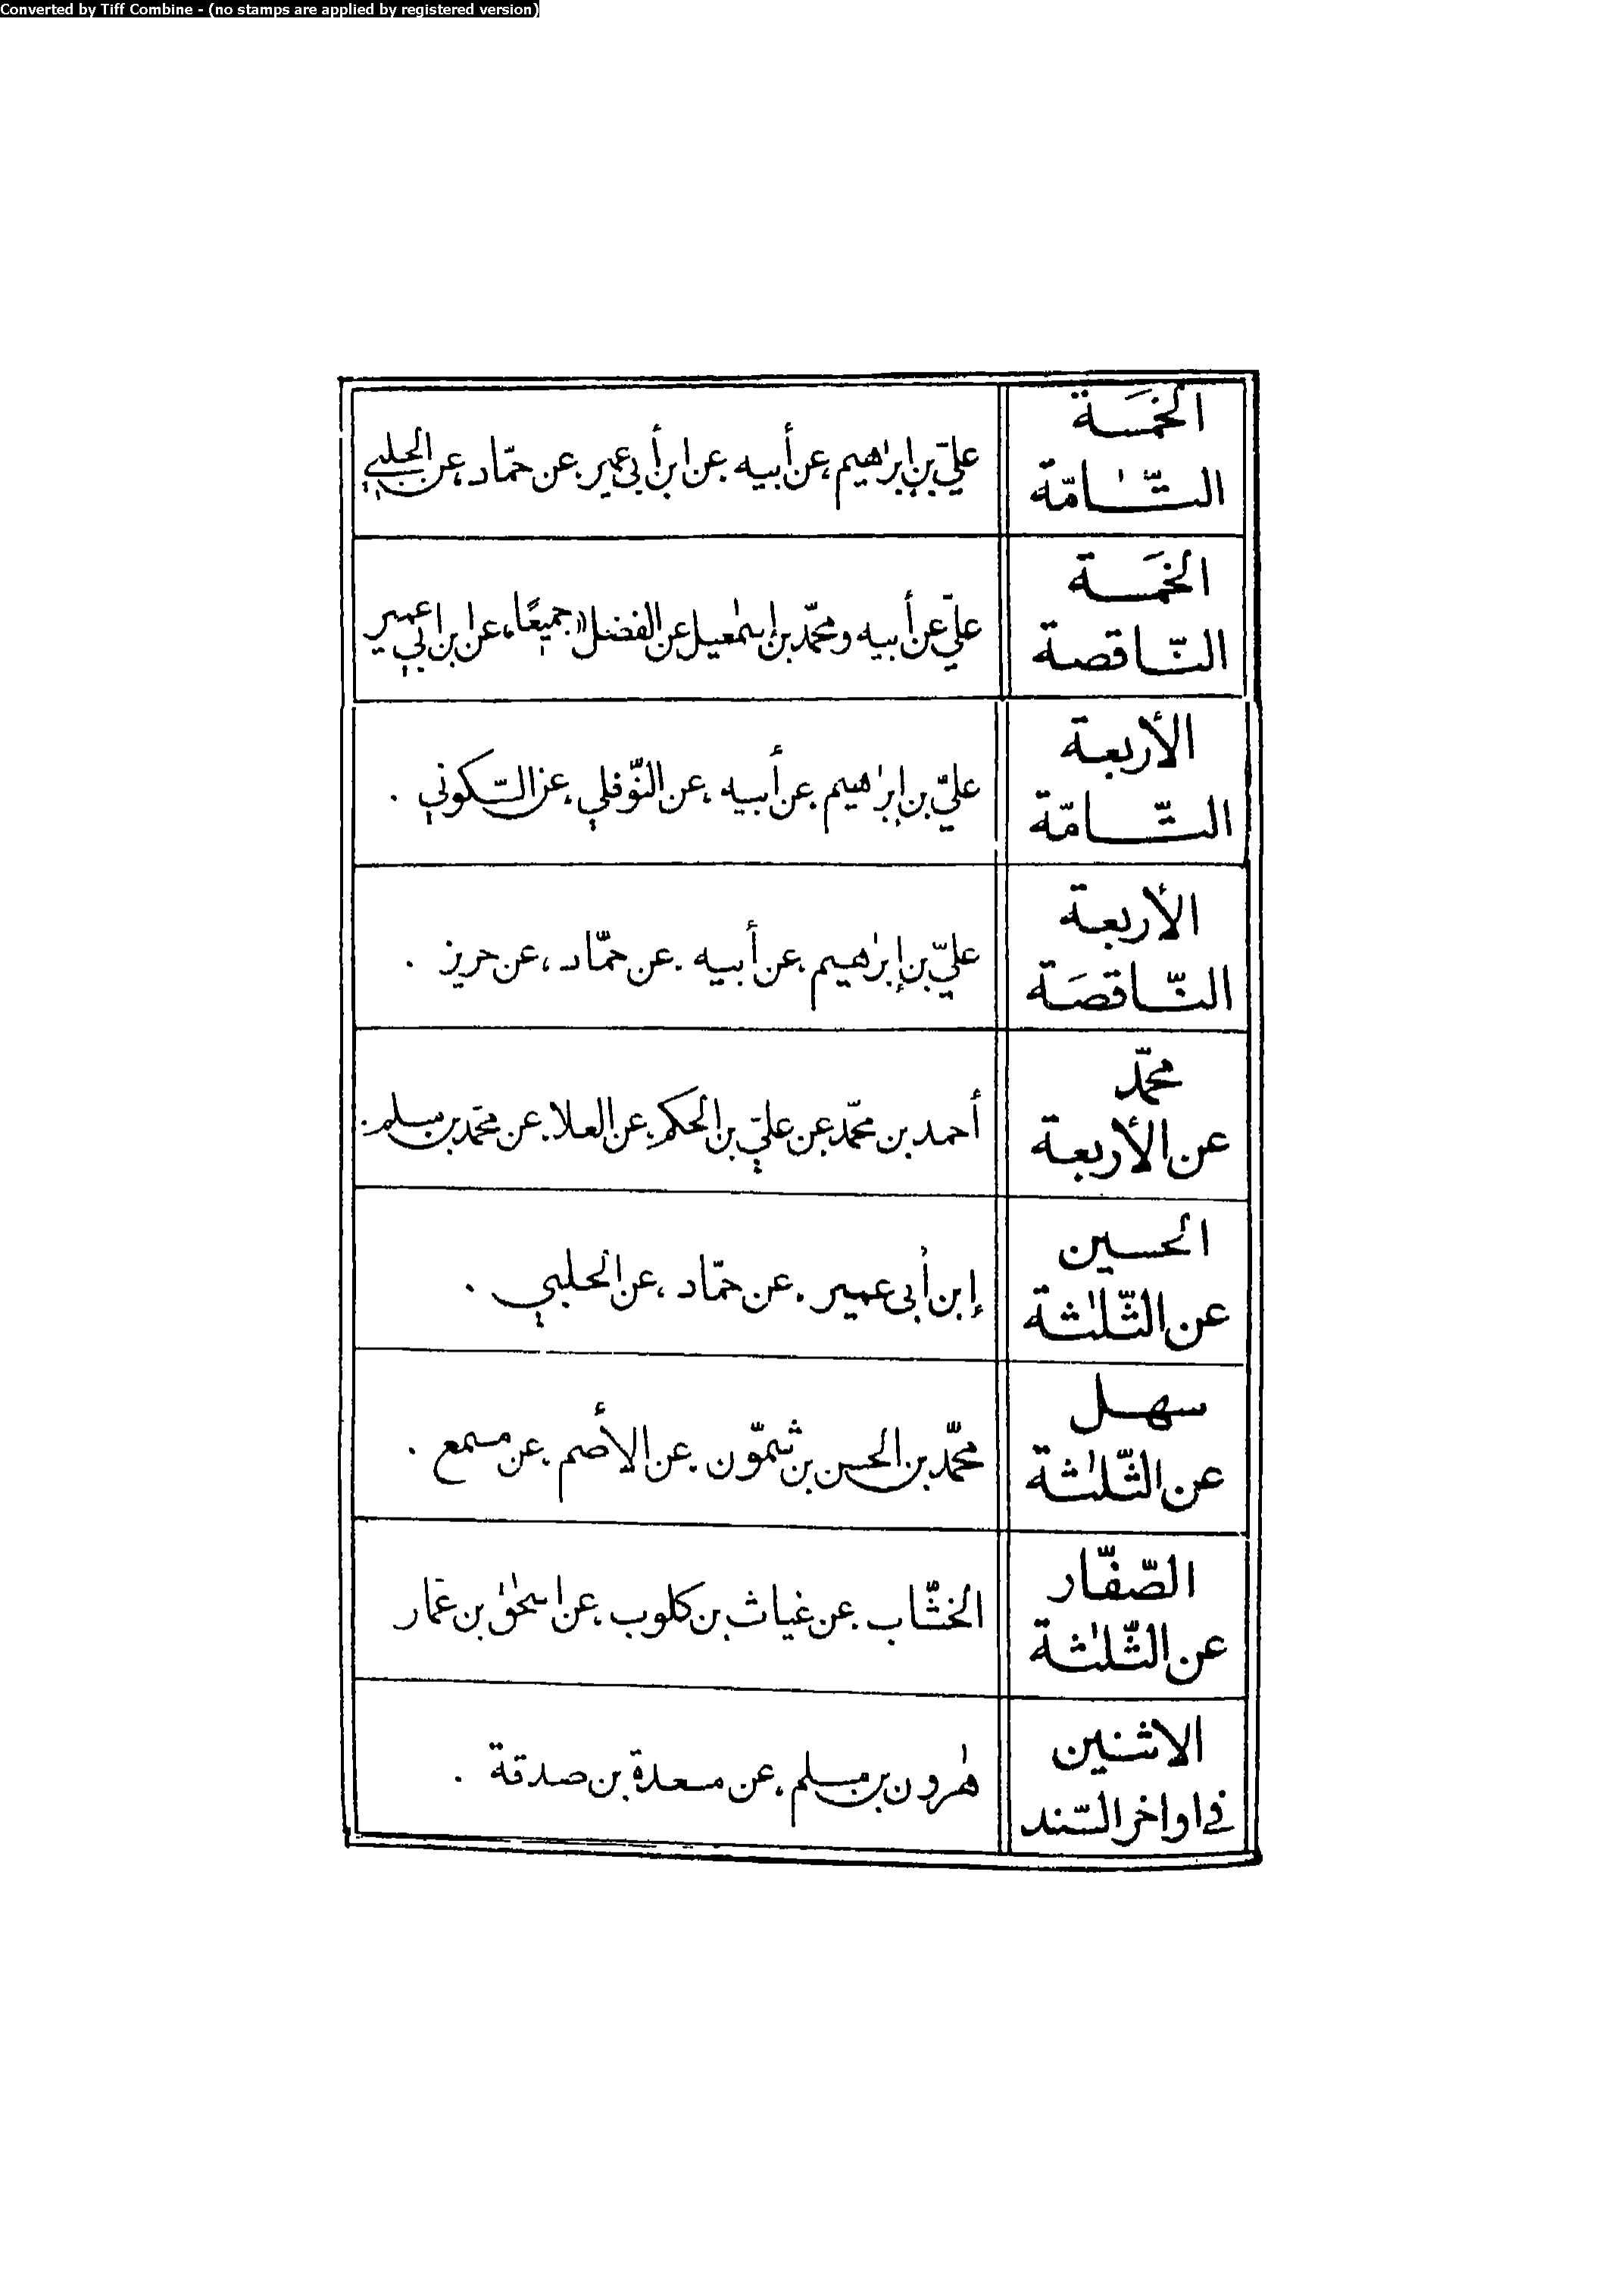 Converted by Tiff Combine - (no stamps are applied by registered version)
الخمسَة
التّامّة
عليّ بن إبرٰاهيم، عن أبيه عن ابن أبي عمير. عن حمّاد، عن الحلبي
الخمَسة
النّاقصة
عليّ عن أبيه ومحمّد بن إسمٰعيل عن الفضل «جميعًا، عن ابن ابي عمير
الأربعة
التّامّة
عليّ بن إبرٰاهيم عن أبيه، عن النّوفلي، عن السّكوني .
الأربعة
النّاقصَة
عليّ بن إبرٰاهيم، عن أبيه . عن حمّاد، عن حريز .
محمّد
عن الأربعة
أحمد بن محمّد عن عليّ بن الحكم. عن العلا. عن محمّد بن مسلم.
الحسين
عن الثّلٰثة
إبن أبى عمير . عن حمّاد، عن الحلبي .
سهل
عن الثّلٰثة
محمّد بن الحسن بن شمّون . عن الأصم . عن مسمع .
الصّفّار
عن الثّلٰثة
الخشّاب . عن غياث بن كلوب . عن اسحٰق بن عمّار
الاثنين
في اواخر السّند
هٰرون بن مسلم، عن مسعدة بن صدقة .